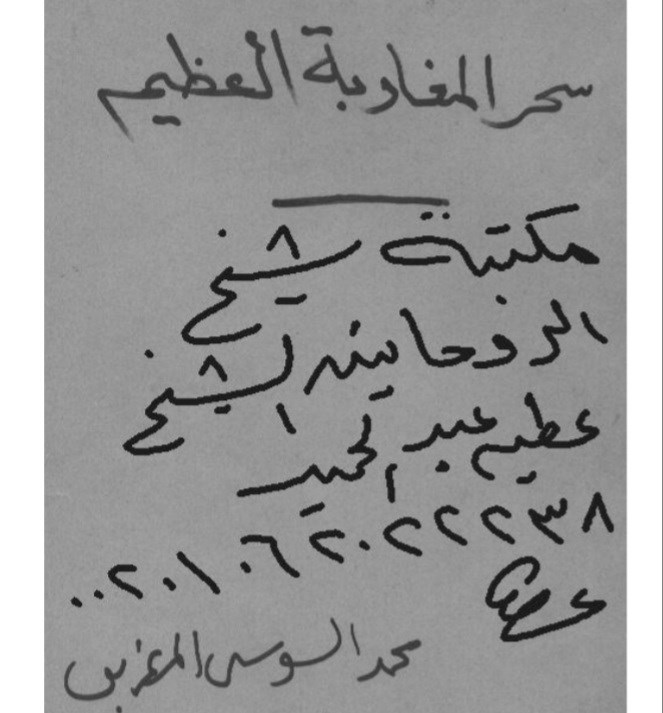 سحر المغاربة العظيم
مكتبة شيخ
الروحانين الشيخ
عطيه عبد الحميد
٠٠٢٠١٠٦٠٢٠٢٢٢٣٨
عطيه
محمد السوسى المغربى